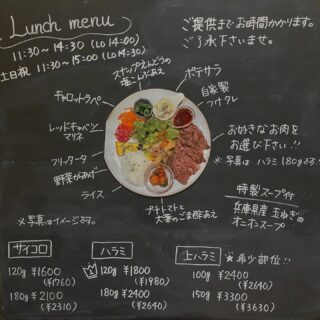 Lunch menu
11:30~14:30 (LO 14:00)
土日祝 11:30~15:00 (LO 14:30)
ご提供までお時間かかります。
ご了承下さいませ。
スナップえんどうの
塩こんぶあえ
ポテサラ
自家製
つけタレ
キャロットラペ
レッドキャベツ
マリネ
フリッタータ
野菜
ライス
お好きなお肉を
お選び下さい!!
※写真は ハラミ 180g です
プチトマトと
大葉のごま酢あえ
特製スープ付
兵庫県産 玉ねぎの
オニオンスープ
※写真はイメージです。
サイコロ
120g ¥1600
(¥1760)
180g ¥2100
(¥2310)
ハラミ
120g ¥1800
(¥1980)
180g ¥2400
(¥2640)
上ハラミ ★希少部位!!
100g ¥2400
(¥2640)
150g ¥3300
(¥3630)